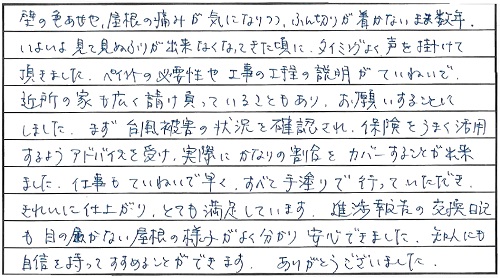 壁の色あせや、屋根の痛みが気になりつつ、ふんぎりが着かないまま数年、
いよいよ見て見ぬふりが出来なくなってきた頃に、タイミングよく声を掛けて
頂きました。ペイントの必要性や工事の工程の説明がていねいで、
近所の家も広く請け負っていることもあり、お願いすることに
しました。まず台風被害の状況を確認され、保険をうまく活用
するようアドバイスを受け、実際にかなりの割合をカバーすることが出来
ました。仕事もていねいで早く、すべて手塗りで行っていただき、
きれいに仕上がり、とても満足しています。進渉報告の交換日記
も目の届かない屋根の様子がよく分かり安心できました。知人にも
自信を持ってすすめることができます。ありがとうございました。